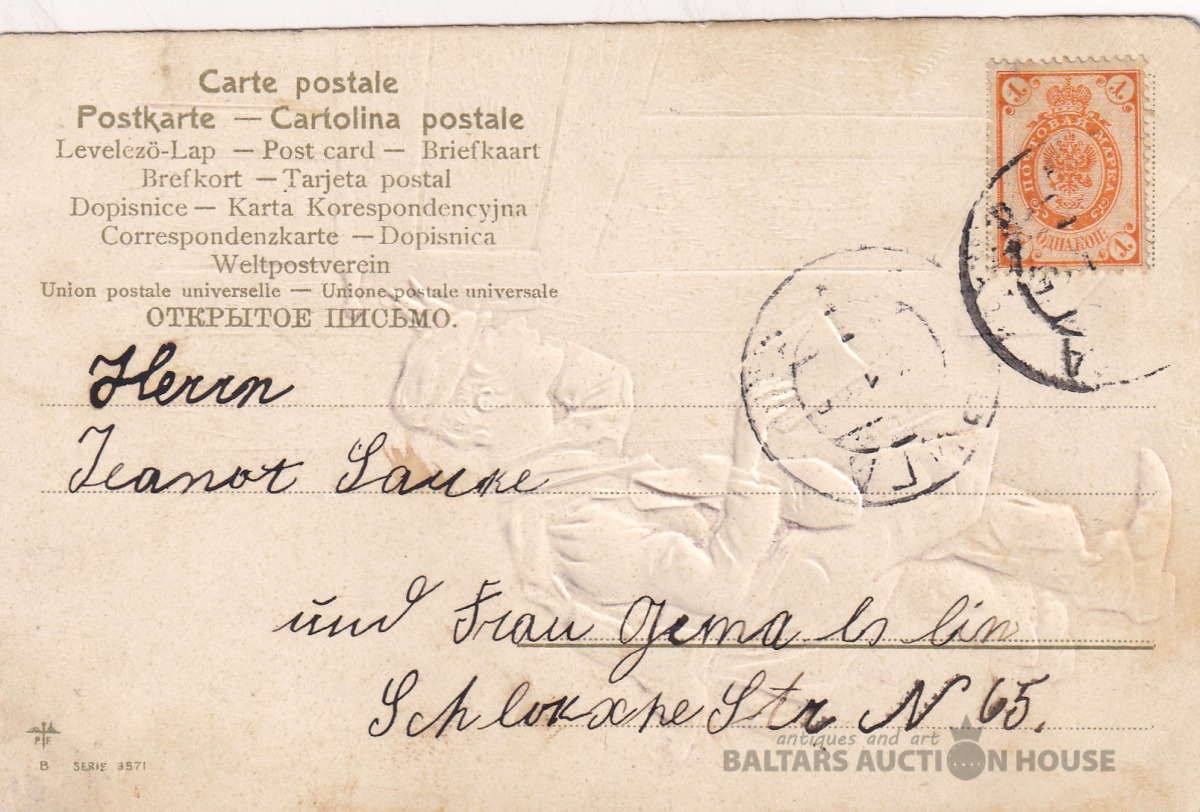 Carte postale
Postkarte — Cartolina postale
Levelező-Lap — Post card — Briefkaart
Brefkort — Tarjeta postal
Dopisnice — Karta Korespondencyjna
Correspondenzkarte — Dopisnica
Weltpostverein
Union postale universelle — Unione postale universale
ОТКРЫТОЕ ПИСЬМО.
1. 1.
ПОЧТОВАЯ МАРКА
ОДНА КОП.
1.
Herrn
Jeanot Sauke
und Frau Gemalslin
Schlokshe Str N 65.
PF
B SERIE 3571
antiques and art
BALTARS AUCTION HOUSE